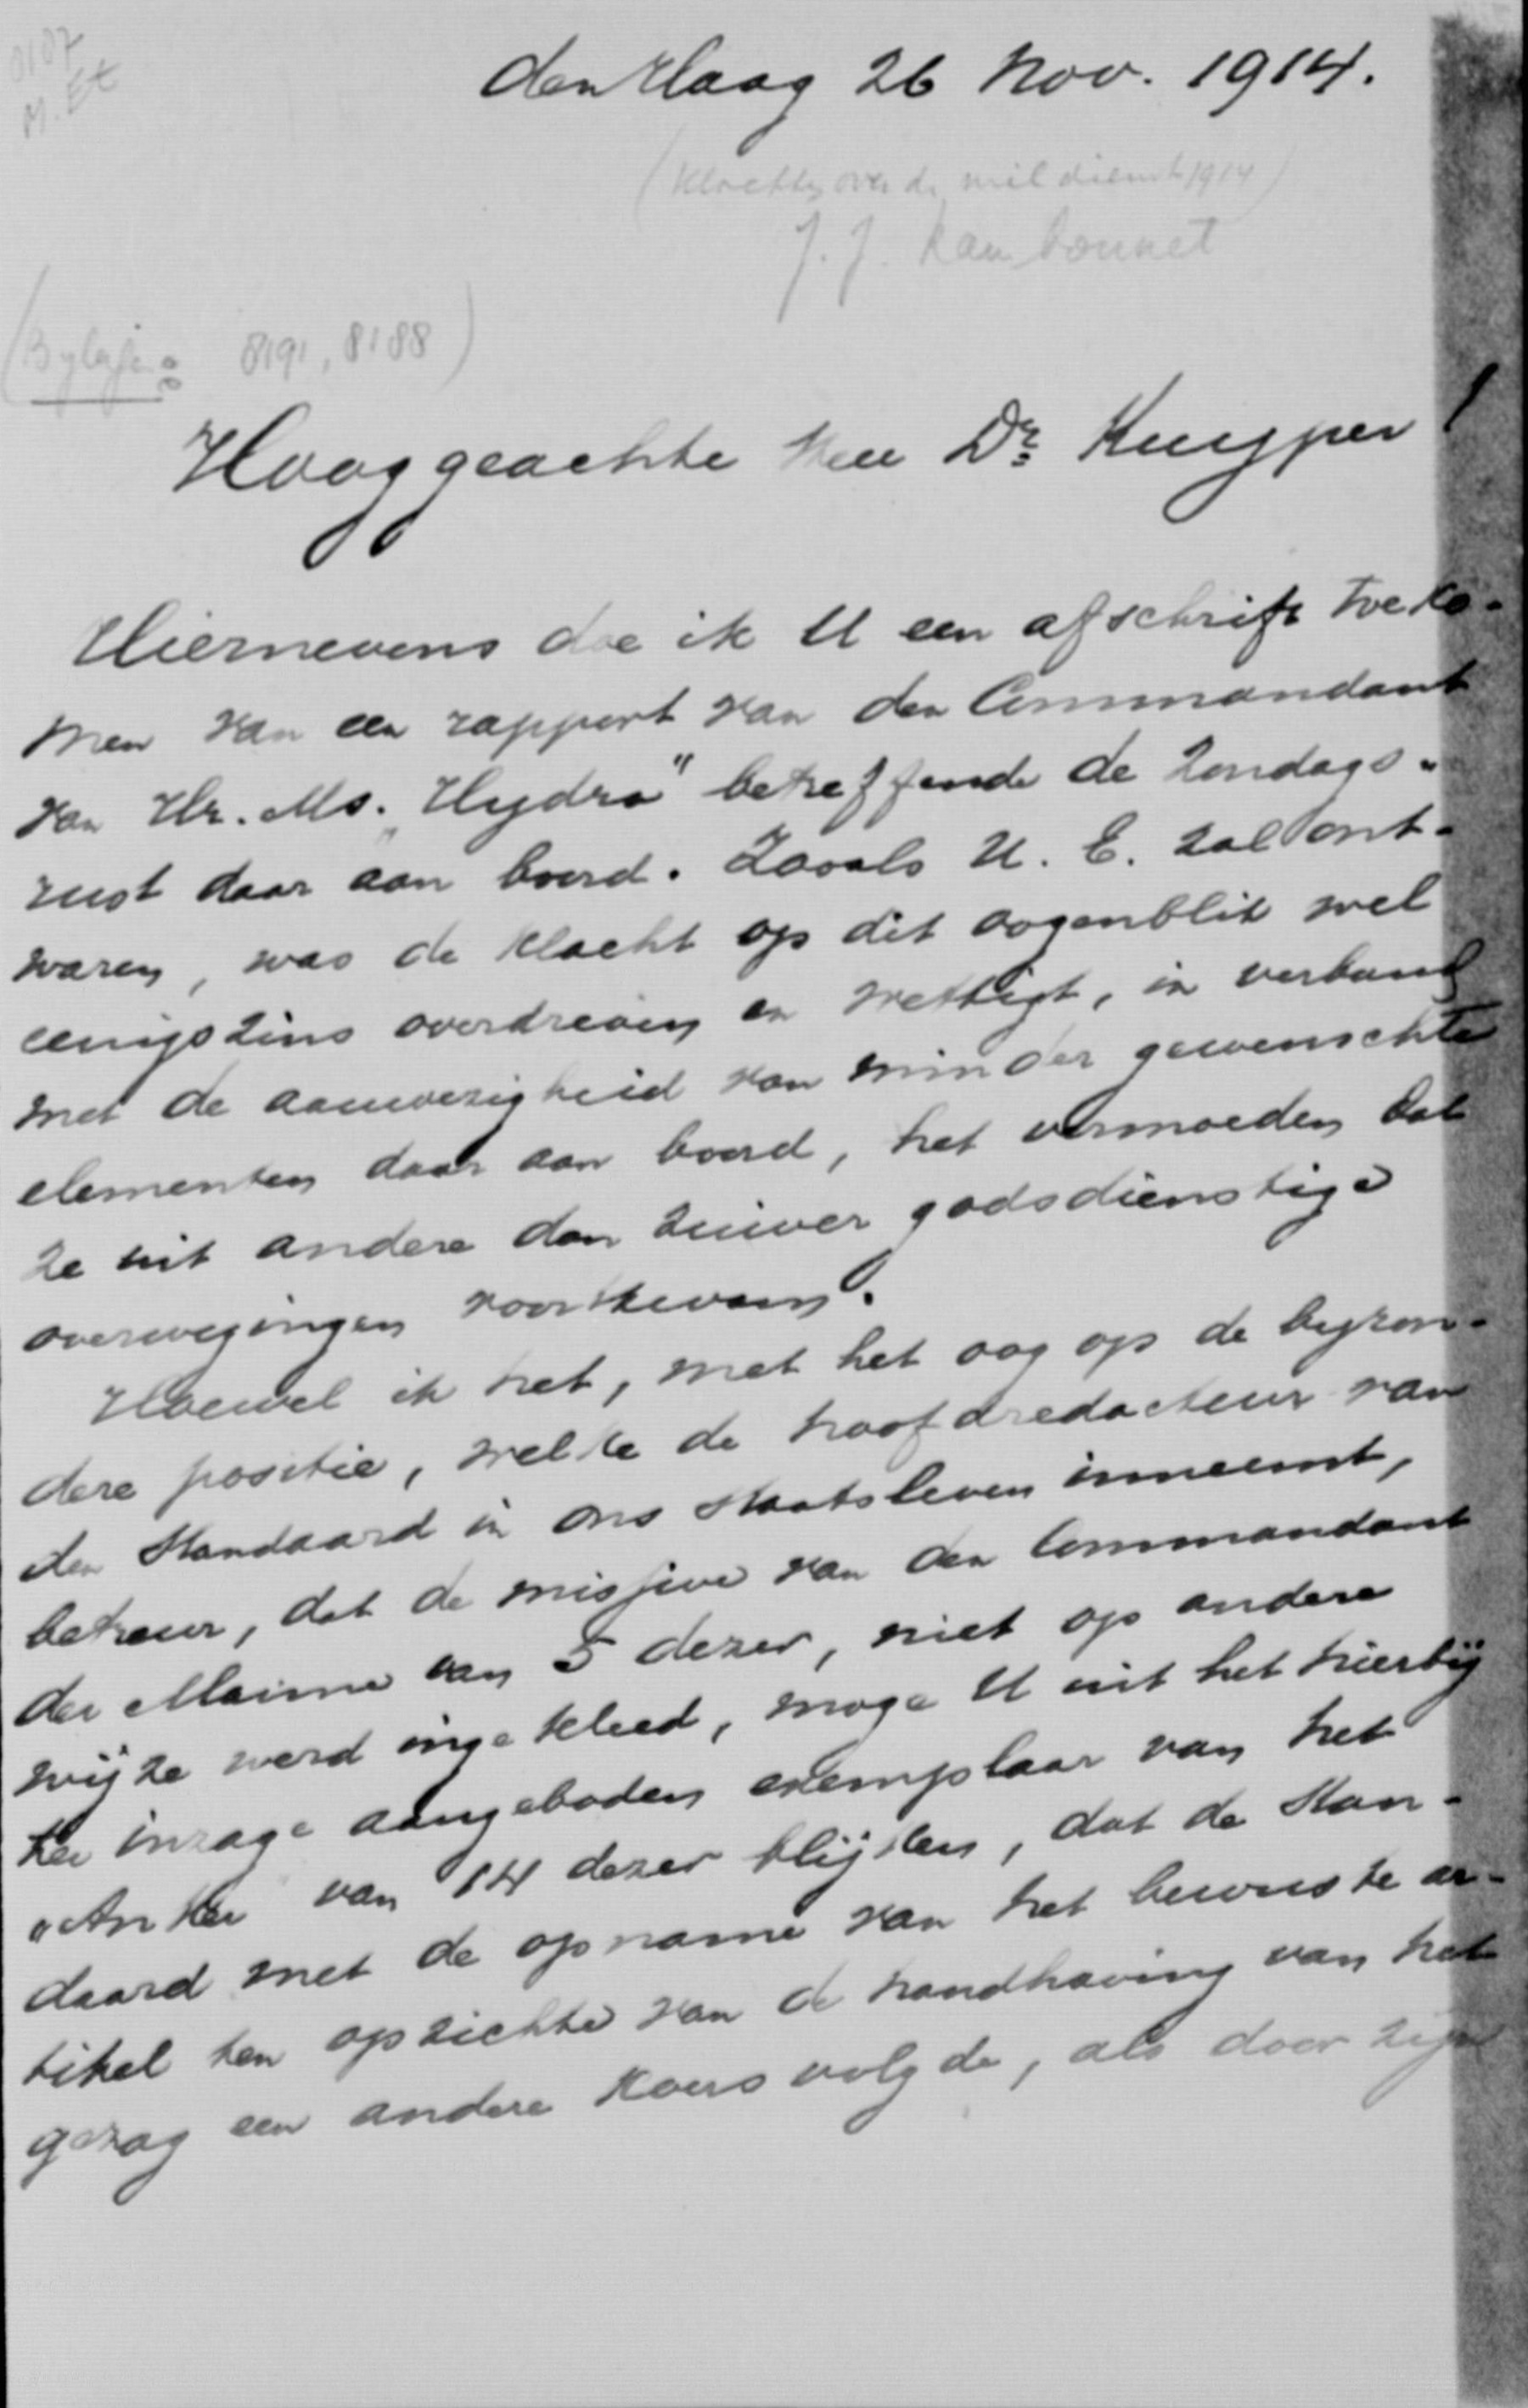 0107
M. Et
den Haag 26 Nov. 1914.
(Klachten over de mil dienst 1914)
J. J. Rambonnet
(Bylagen: 8191, 8188)
Hooggeachte Heer Dr. Kuyper!
Hiernevens doe ik U een afschrift toeko-
men van een rapport van den Commandant
van Hr. Ms. „Hydra" betreffende de Zondags-
rust daar aan boord. Zooals U. E. zal ont-
waren, was de klacht op dit oogenblik wel
eenigszins overdreven en wettigt, in verband
met de aanwezigheid van minder gewenschte
elementen daar aan boord, het vermoeden dat
ze uit andere dan zuiver godsdienstige
overwegingen voortkwam.
Hoewel ik het, met het oog op de byzon-
dere positie, welke de hoofdredacteur van
den Standaard in ons Staatsleven inneemt,
betreur, dat de missive van den Commandant
der Marine van 5 dezer, niet op andere
wijze werd ingekleed, moge U uit het hierbij
ter inzage aangeboden exemplaar van het
„Anker van 14 dezer blijken, dat de Stan-
daard met de opname van het bewuste ar-
tikel ten opzichte van de handhaving van het
gezag een andere koers volgde, als door zijn